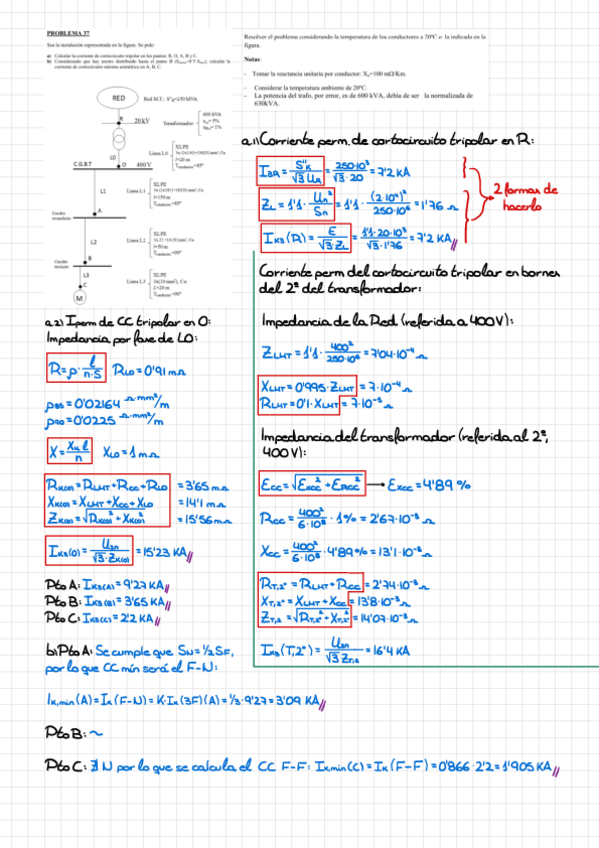 PROBLEMA 37
Sea la instalación representada en la figura. Se pide:
a) Calcular la corriente de cortocircuito tripolar en los puntos: R, O, A, B y C.
corriente de cortocircuito mínima asimétrica en A, B, C.
Resolver el problema considerando la temperatura de los conductores a 20ºC o la indicada en la
figura.
Notas:
- Tomar la reactancia unitaria por conductor: Xu=100 mΩ/Km.
- Considerar la temperatura ambiente de 20ºC.
- La potencia del trafo, por error, es de 600 kVA, debía de ser la normalizada de
630kVA.
RED
Red M.T.: S"k=250 MVA
R
20 kV
Transformador
600 kVA
L0
Línea L0
XLPE
l=20 m
C.G.B.T
O
400 V
L1
Línea L1
XLPE
l=150 m
A
L2
Línea L2
XLPE
l=50 m
B
L3
Línea L3
XLPE
l=20 m
C
M
a.1) Corriente perm. de cortocircuito tripolar en R:
I3R = S"k / √3 UR = 250·10³ / √3·20 = 7'2 KA
ZL = 1'1 · Un² / Sn = 1'1 · (2·10⁴)² / 250·10⁶ = 1'76 Ω
Ik3(R) = E / √3·ZL = 1'1·20·10³ / √3·1'76 = 7'2 KA
2 formas de
hacerlo
Corriente perm del cortocircuito tripolar en bornes
del 2º del transformador:
Impedancia de la Red (referida a 400V):
ZLMT = 1'1 · 400² / 250·10⁶ = 7'04·10⁻⁴ Ω
XLMT = 0'995·ZLMT = 7·10⁻⁴ Ω
RLMT = 0'1·XLMT = 7·10⁻⁵ Ω
Impedancia del transformador (referida al 2º,
400V):
Ecc = √Excc² + ERcc² → Excc = 4'89 %
Rcc = 400² / 6·10⁵ · 1% = 2'67·10⁻³ Ω
Xcc = 400² / 6·10⁵ · 4'89% = 13'1·10⁻³ Ω
RT,2º = RLMT + Rcc = 2'74·10⁻³ Ω
XT,2º = XLMT + Xcc = 13'8·10⁻³ Ω
ZT,2 = √RT,2² + XT,2² = 14'07·10⁻³ Ω
Ik3(T,2º) = U2n / √3 ZT,2 = 16'4 KA
a.2) Iperm de CC tripolar en O:
Impedancia por fase de LO:
R = ρ · l / n·S RLO = 0'91 mΩ
ρ85 = 0'02164 Ω·mm²/m
ρ90 = 0'0225 Ω·mm²/m
X = Xu l / n XLO = 1 mΩ
RK(O) = RLMT + Rcc + RLO = 3'65 mΩ
XK(O) = XLMT + Xcc + XLO = 14'1 mΩ
ZK(O) = √RK(O)² + XK(O)² = 15'56 mΩ
IK3(O) = U2n / √3·ZK(O) = 15'23 KA
Pto A: IK3(A) = 9'27 KA
Pto B: IK3(B) = 3'65 KA
Pto C: IK3(C) = 2'2 KA
b) Pto A: Se cumple que SN = ½ SF,
por lo que CC mín será el F-N:
IK,min (A) = IK (F-N) = K·IK (3F)(A) = 1/3·9'27 = 3'09 KA
Pto B: ~
Pto C: ∄ N por lo que se calcula el CC F-F: IK,min (C) = IK (F-F) = 0'866·2'2 = 1'905 KA